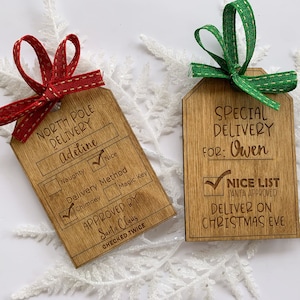 NORTH POLE
DELIVERY
Adeline
Naughty Nice
Delivery Method
Chimney Magic Key
APPROVED BY
Santa Claus
CHECKED TWICE
SPECIAL
DELIVERY
FOR: Owen
NICE LIST
SANTA APPROVED
DELIVER ON
CHRISTMAS EVE